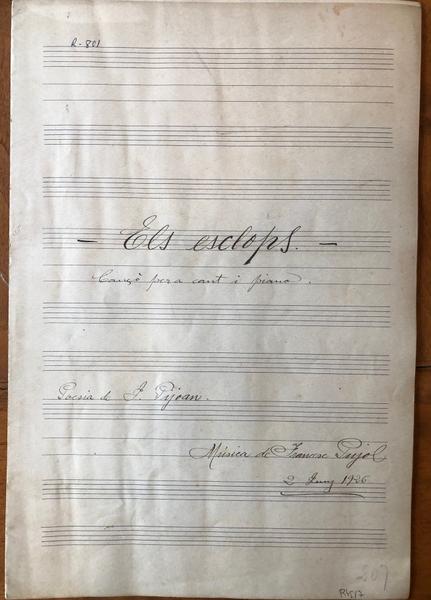 R-801
- Els esclops. -
Cançó per a cant i piano.
Poesia de J. Pijoan.
Música de Francesc Pujol
2 Juny 1926
207
R1517